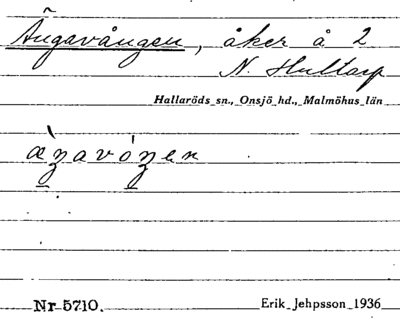 Ängavången, åker å 2
N. Hultarp
Hallaröds sn., Onsjö hd., Malmöhus län
Nr 5710.
Erik Jehpsson 1936